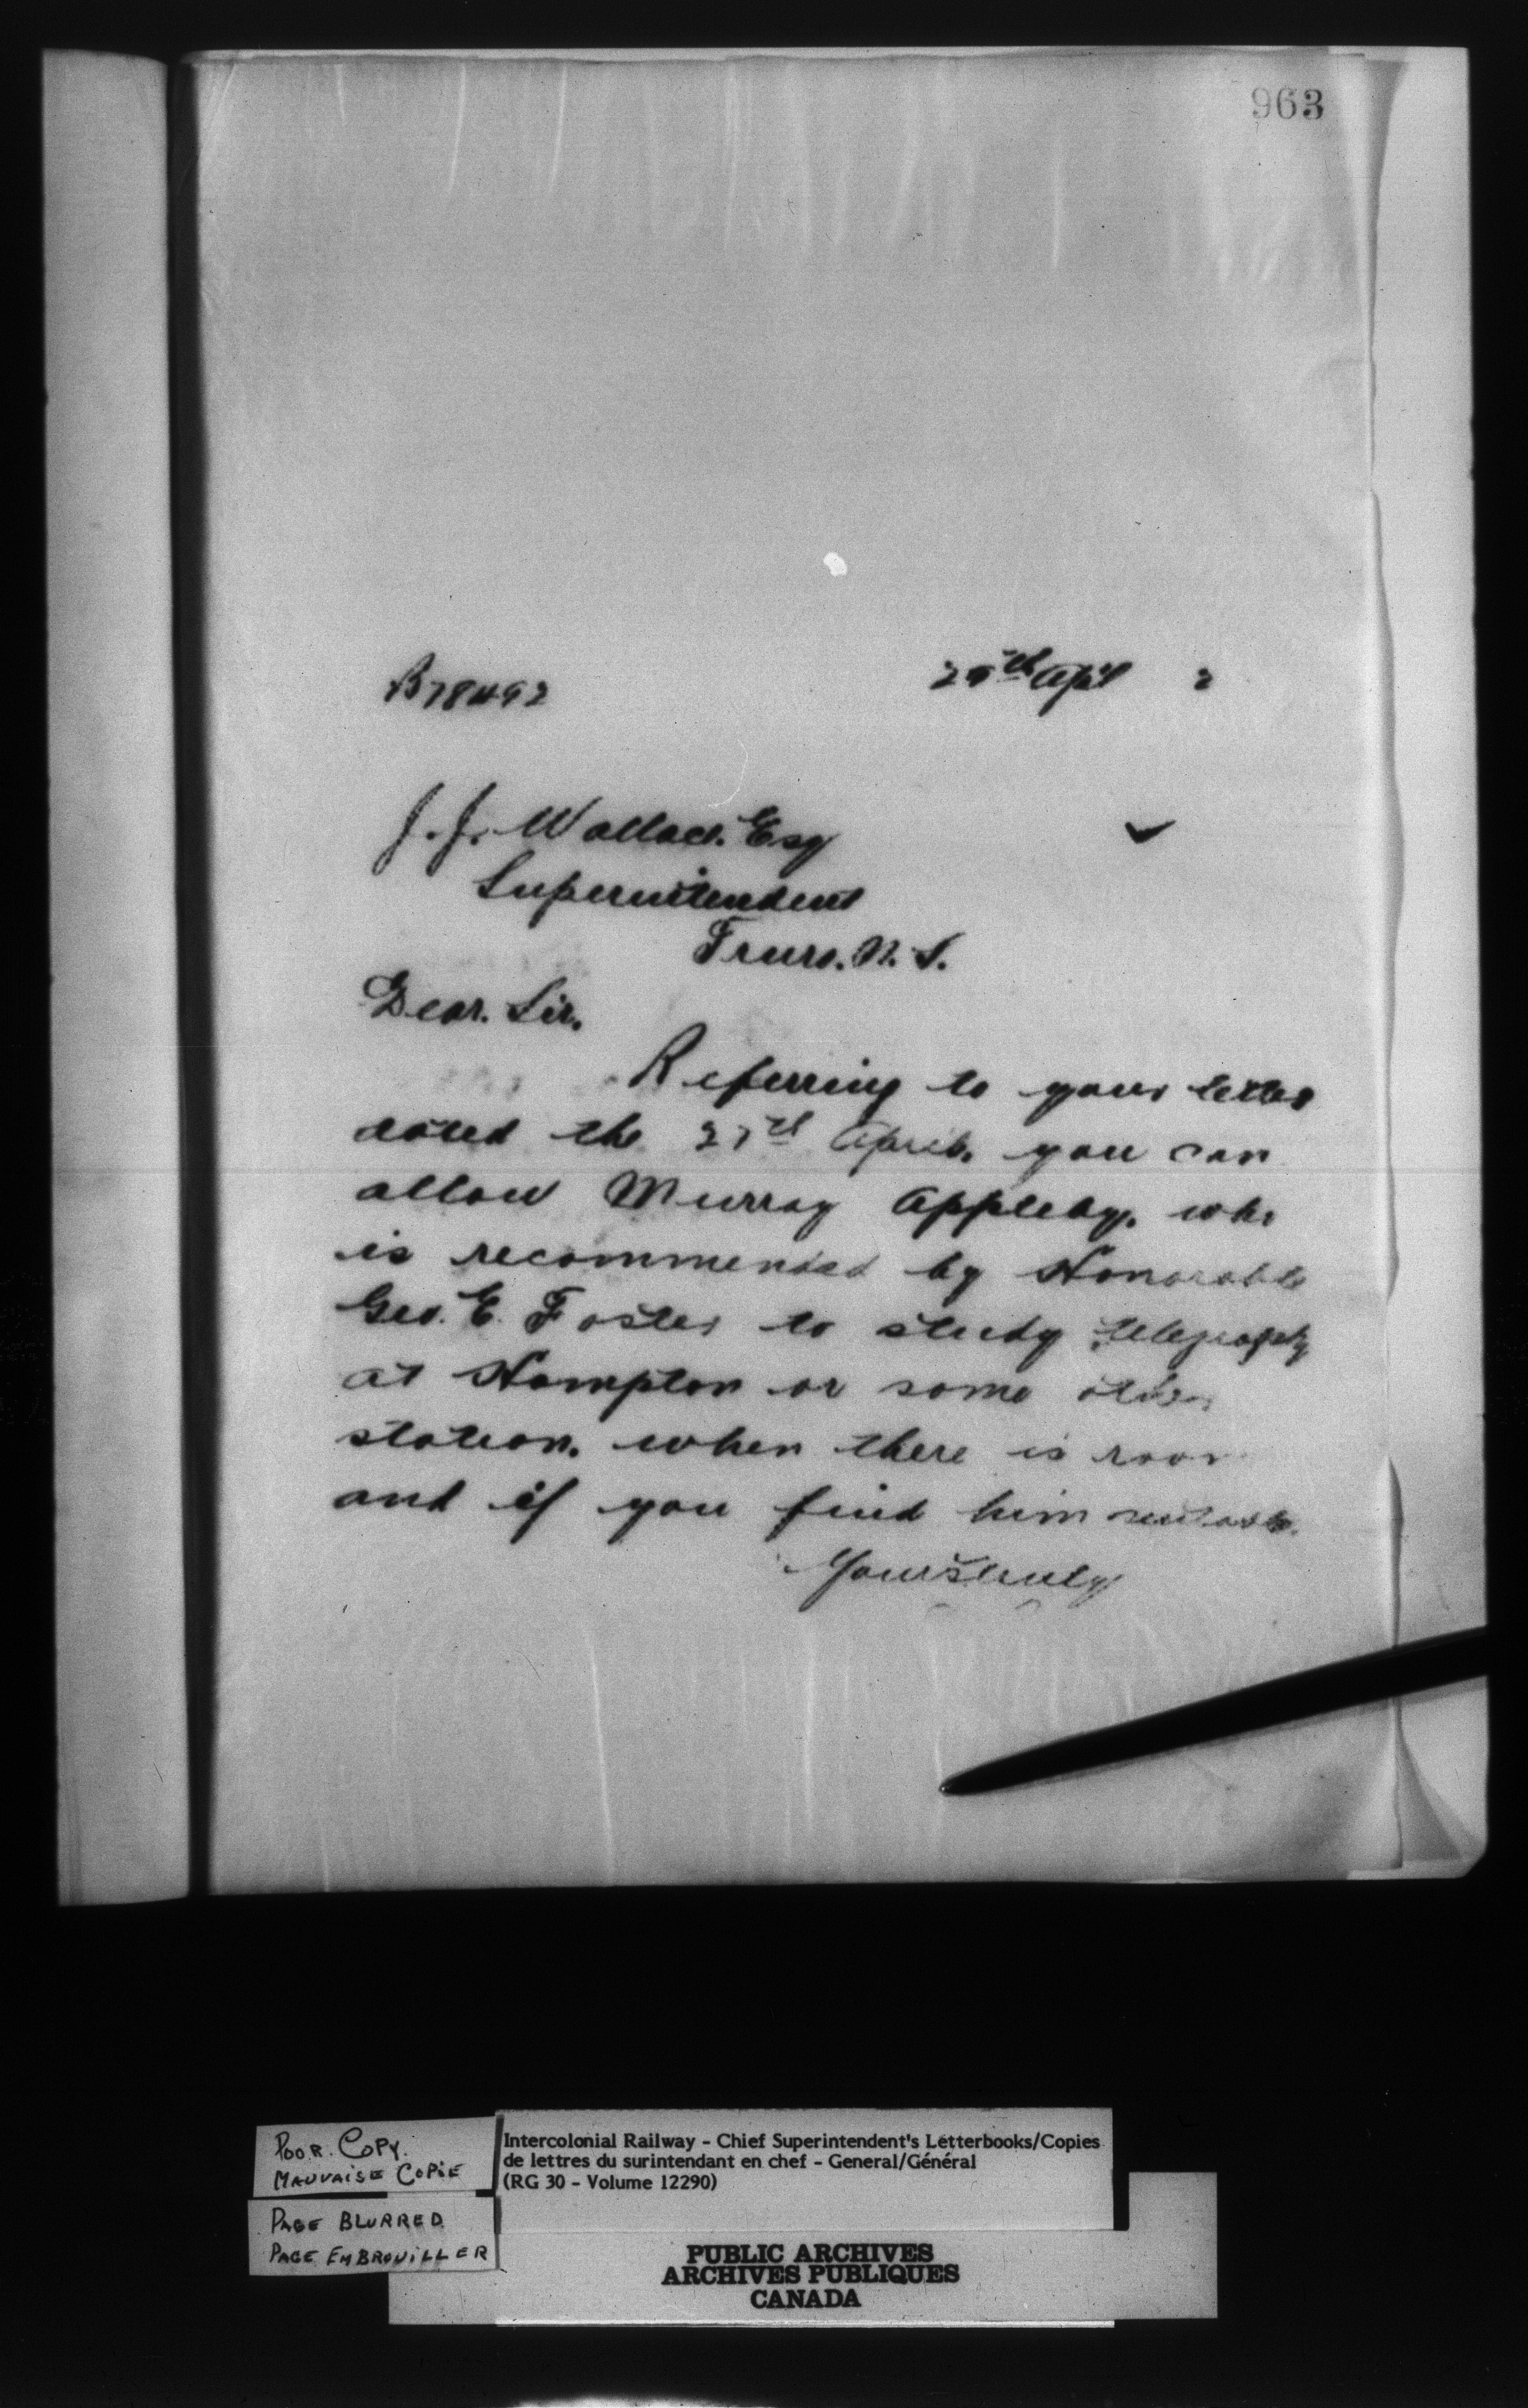 963
B78492
29th April 2
J. J. Wallace. Esq
Superintendent
Truro. N. S.
Dear. Sir.
Referring to your letter
dated the 27th April. you can
allow Murray Appleby. who
is recommended by Honorable
Geo. E. Foster to study telegraphy
at Hampton or some other
station. when there is room
and if you find him suitable.
Yours truly
POOR. COPY.
MAUVAISE COPIE
PAGE BLURRED
PAGE EMBROUILLER
Intercolonial Railway - Chief Superintendent's Letterbooks/Copies
de lettres du surintendant en chef - General/Général
(RG 30 - Volume 12290)
PUBLIC ARCHIVES
ARCHIVES PUBLIQUES
CANADA